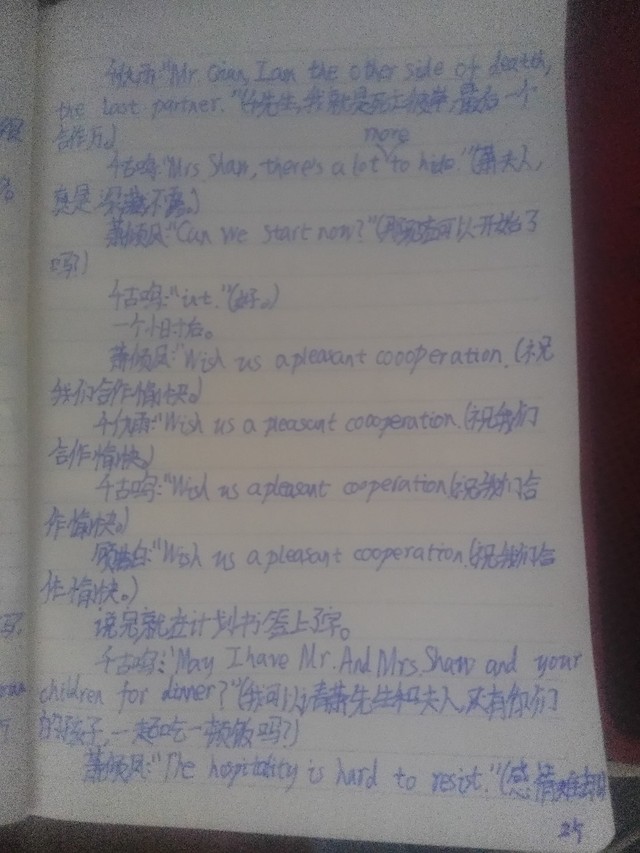 千伏雨:"Mr. Qian, I am the other side of death,
the last partner."(千先生,我就是死亡彼岸,最后一个
合作方。)
more
千古鸣:"Mrs Shaw, there's a lot to hide."(萧夫人,
真是深藏不露。)
萧倾风:"Can we start now?"(那现在可以开始了
吗?)
千古鸣:"just."(好。)
一个小时后。
萧倾风:"Wish us a pleasant coooperation.(祝
我们合作愉快。)
千伏雨:"Wish us a pleasant cooperation.(祝我们
合作愉快。)
千古鸣:"Wish us a pleasant cooperation(祝我们合
作愉快。)
白:"Wish us a pleasant cooperation.(祝我们合
作愉快。)
说完就在计划书签上了字。
千古鸣:"May I have Mr. And Mrs. Shaw and your
children for dinner?"(我可以请萧先生和夫人,及有你们
的孩子,一起吃一顿饭吗?)
萧倾风:"The hospitality is hard to resist."(感情难却
25